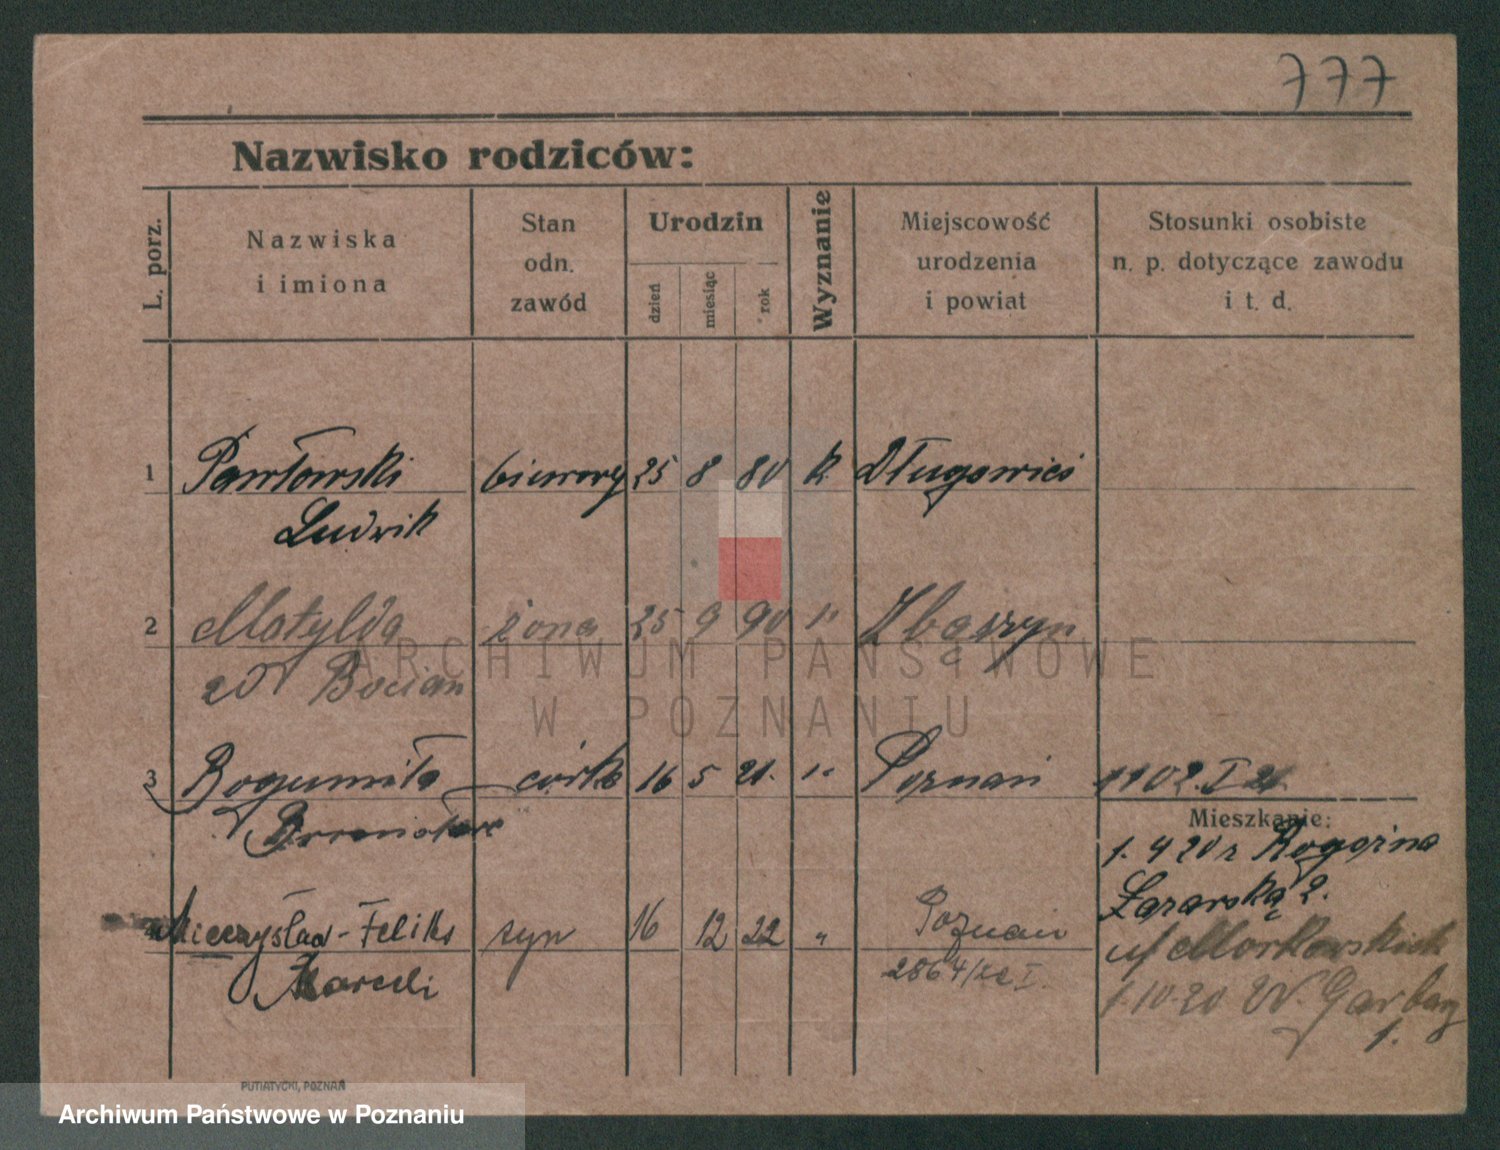 777
Nazwisko rodziców:
L. porz.
Nazwiska
i imiona
Stan
odn.
zawód
Urodzin
dzień
miesiąc
rok
Wyznanie
Miejscowość
urodzenia
i powiat
Stosunki osobiste
n. p. dotyczące zawodu
i t. d.
1 Pawłowski biurowy 25 8 80 k.
Ludwik
2 Matylda żona 25 9 90 Zbąszyn
Bocian
3 Bogumiła córka 16 5 21. Poznań 1102. I 21
Mieszkanie:
1. 4 20 z Rogoźna
Łazarska 2.
Mieczysław-Feliks syn 16 12 22 " Poznań
Marceli 2864/22 I.
1.10.20 W. Garbary
1.
PUTIATYCKI, POZNAŃ
ARCHIWUM PAŃSTWOWE
W POZNANIU
Archiwum Państwowe w Poznaniu